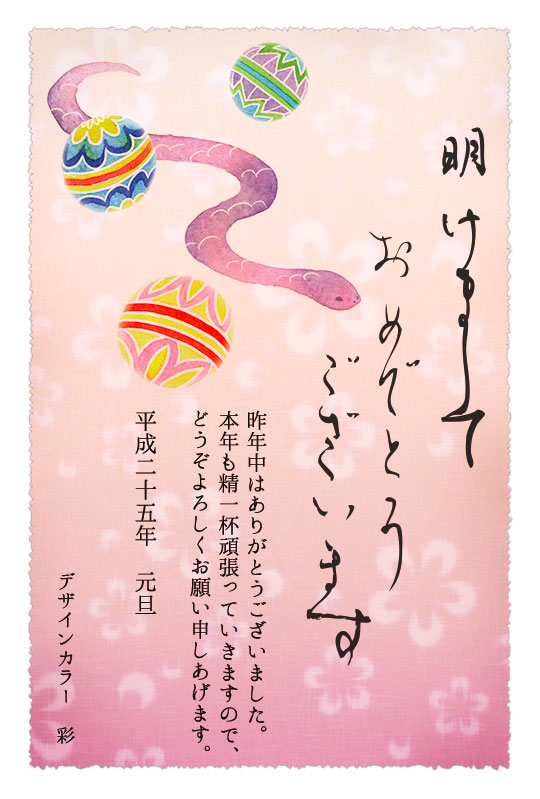 明けまして
おめでとう
ございます
昨年中はありがとうございました。
本年も精一杯頑張っていきますので、
どうぞよろしくお願い申しあげます。
平成二十五年　元旦
デザインカラー　彩